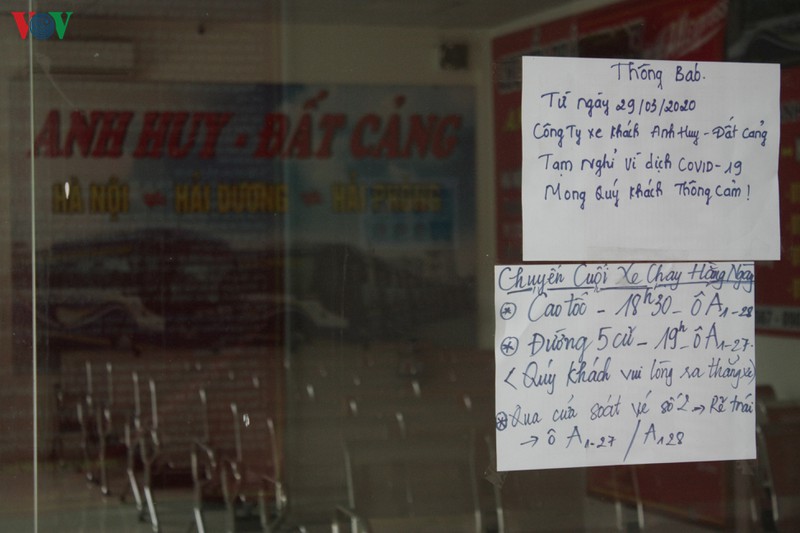 VOV
ANH HUY - ĐẤT CẢNG
HÀ NỘI HẢI DƯƠNG HẢI PHÒNG
Thông Báo.
Từ ngày 29/03/2020
Công Ty xe khách Anh Huy - Đất Cảng
Tạm nghỉ vì dịch COVID-19
Mong Quý khách Thông Cảm!
Chuyến Cuối Xe Chạy Hằng Ngày
* Cao tốc - 18h30 - Ô A1-28
* Đường 5 cũ - 19h - Ô A1-27.
(Quý khách vui lòng ra thẳng xe)
* Qua cửa soát vé số 2 → Rẽ trái
→ Ô A1-27 / A128